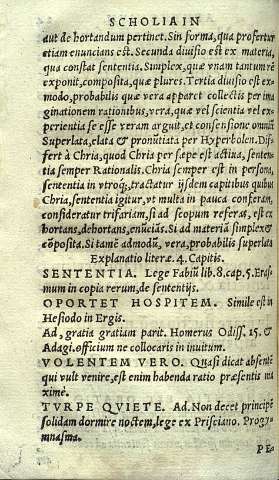 SCHOLIA IN
aut de hortandum pertinet. Sin forma, qua profertur
etiam enuncians est. Secunda diuisio est ex materia,
qua constat sententia. Simplex, quæ vnam tantum rē
exponit, composita, quæ plures. Tertia diuisio est ex
modo, probabilis quæ vera apparet collectis per ima
ginationem rationibus, vera, quæ vel scientia vel ex-
perientia se esse veram arguit, et consensione omniū
Superlata, elata & pronūtiata per Hyperbolen. Dif-
fert à Chria, quod Chria per sæpe est actiua, senten-
tia semper Rationalis. Chria semper est in persona,
sententia in vtroq;, tractatur ijsdem capitibus quibus
Chria, sententia igitur, vt multa in pauca conferam,
consideratur trifariam, si ad scopum referas, est ex
hortans, dehortans, enūciās. Si ad materiā simplex &
cōposita. Si tamē admodū, vera, probabilis superlata
Explanatio literæ. 4. Capitis.
SENTENTIA. Lege Fabiū lib. 8. cap. 5. Eras-
mum in copia rerum, de sententijs.
OPORTET HOSPITEM. Simile est in
Hesiodo in Ergis.
Ad, gratia gratiam parit. Homerus Odiss. 15. &
Adagi. officium ne collocaris in inuitum.
VOLENTEM VERO. Quasi dicat absentē
qui vult venire, est enim habenda ratio præsentis ma
ximè.
TVRPE QVIETE. Ad. Non decet principē
solidam dormire noctem, lege ex Prisciano. Progy-
mnasma.
PE-